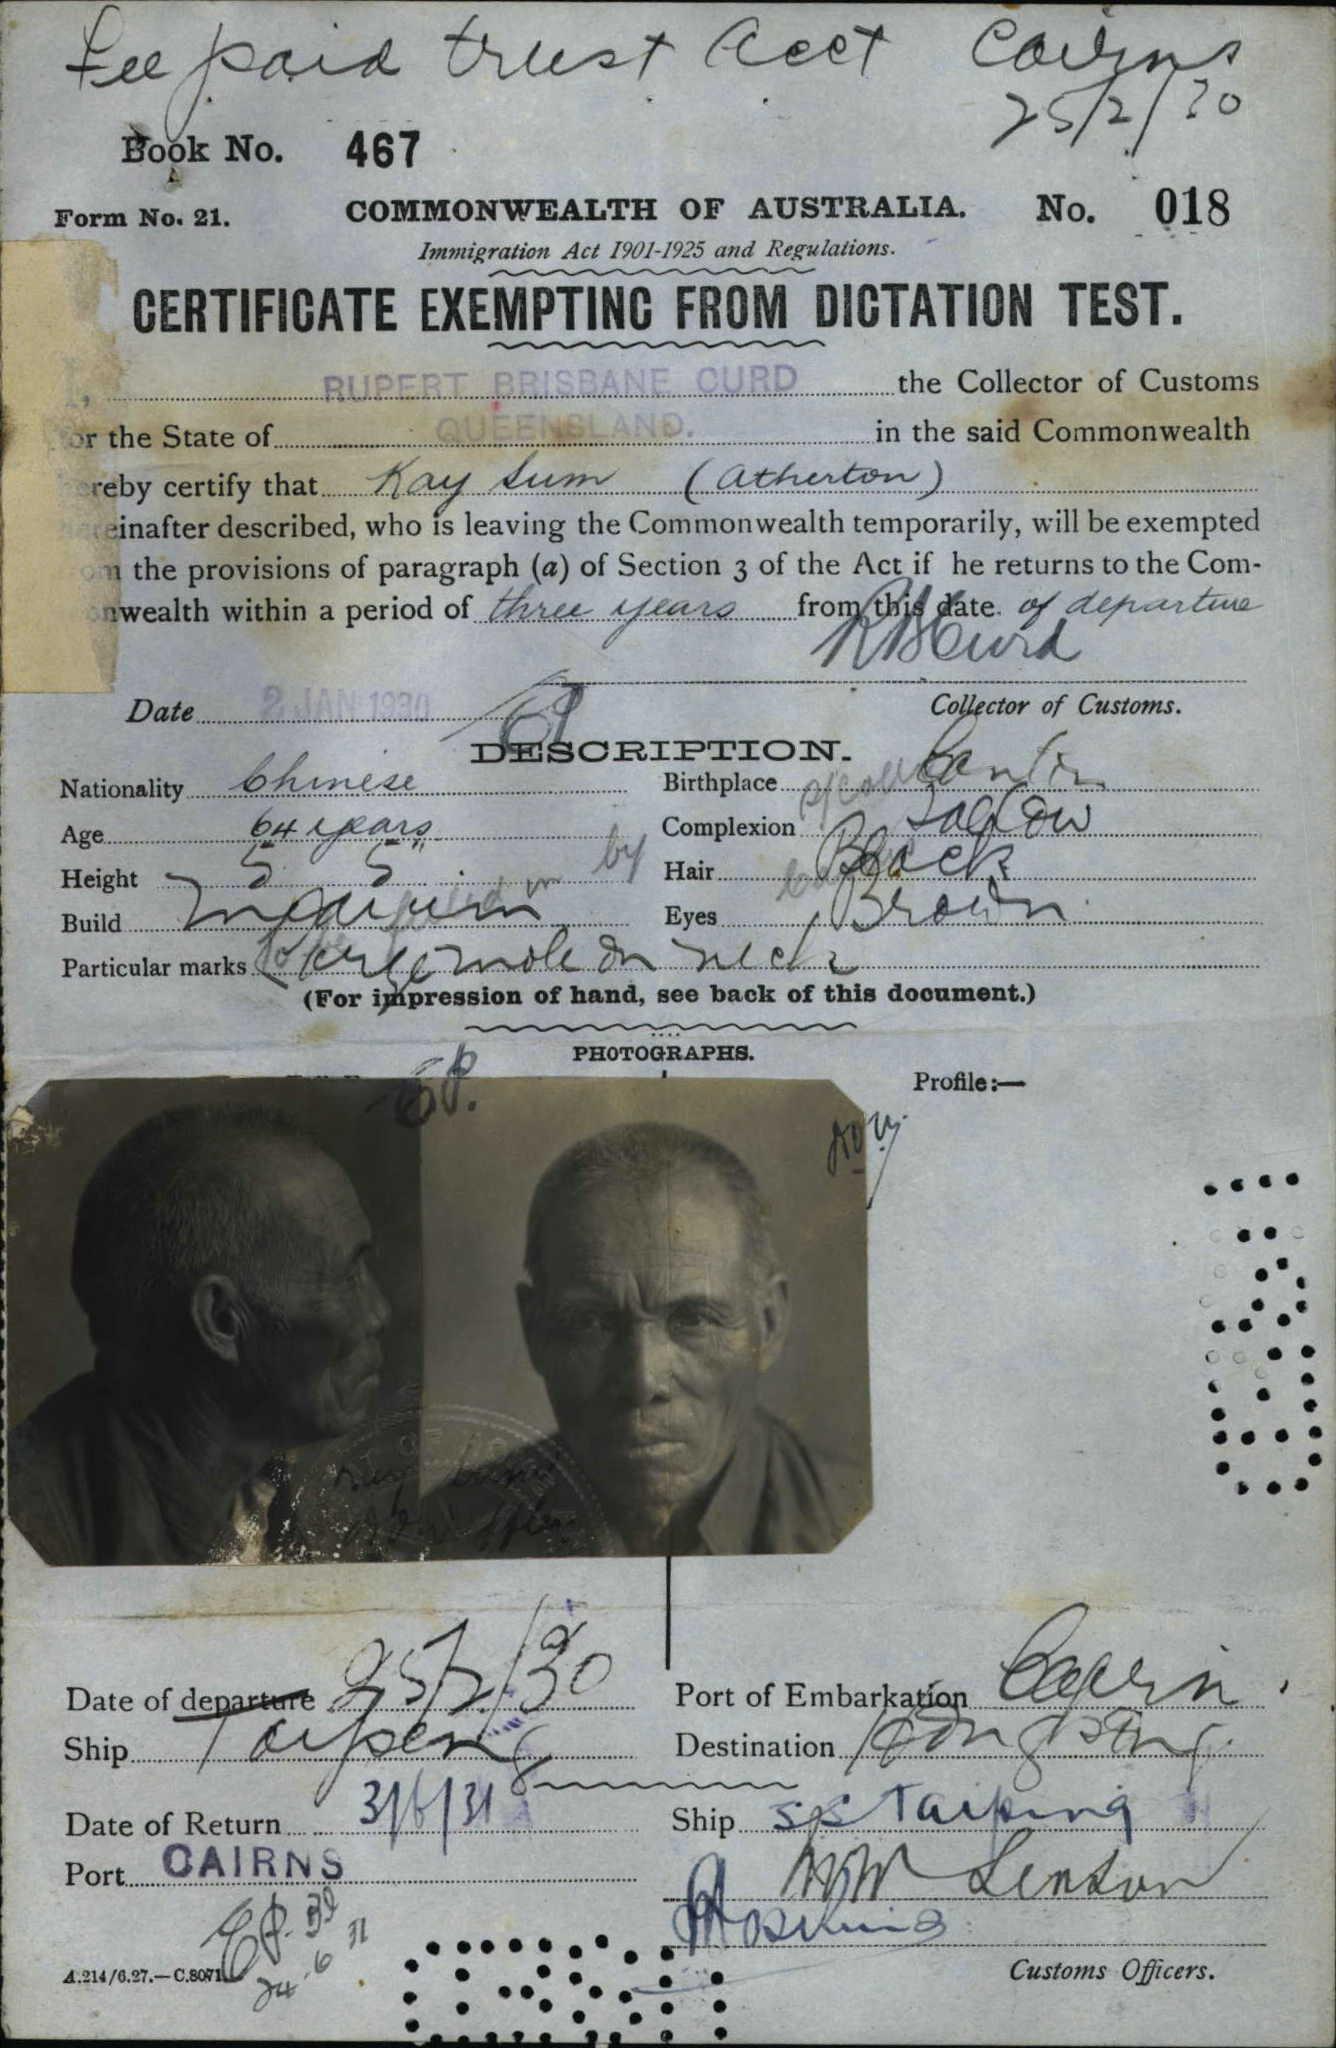 Fee paid trust Acct Cairns
25/2/30
Book No. 467
Form No. 21. COMMONWEALTH OF AUSTRALIA. No. 018
Immigration Act 1901-1925 and Regulations.
CERTIFICATE EXEMPTING FROM DICTATION TEST.
I, RUPERT BRISBANE CURD the Collector of Customs
for the State of QUEENSLAND. in the said Commonwealth
hereby certify that Kay Sum (Atherton)
hereinafter described, who is leaving the Commonwealth temporarily, will be exempted
from the provisions of paragraph (a) of Section 3 of the Act if he returns to the Com-
monwealth within a period of three years from this date of departure
R B Curd
Date 2 JAN 1930 Collector of Customs.
DESCRIPTION.
Nationality Chinese Birthplace Canton
Age 64 years Complexion Sallow
Height 5' 5" Hair Black
by
Build Medium Eyes Brown
Particular marks Large mole on neck
(For impression of hand, see back of this document.)
PHOTOGRAPHS.
Profile:—
Date of departure 25/2/30 Port of Embarkation Cairns
Ship Taiping Destination Hong Kong
Date of Return 3/6/31 Ship SS Taiping
Port CAIRNS
24.6.31
A.214/6.27.—C.8071. Customs Officers.